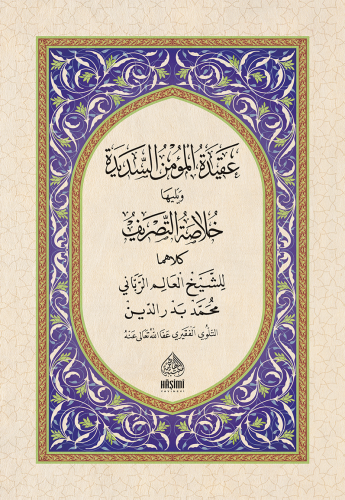 عَقِيدَةُ الْمُؤْمِنِ السَّدِيدَة
وَيَلِيهَا
خُلَاصَةُ التَّصْرِيفْ
كلاهما
لِلشَّيْخِ الْعَالِمِ الرَّبَّانِي
مُحَمَّدْ بَدْرِ الدِّينْ
التِّلْوِي الْفَقِيرِي عَفَا اللهُ تَعَالَى عَنْهُ
HÂŞİMİ